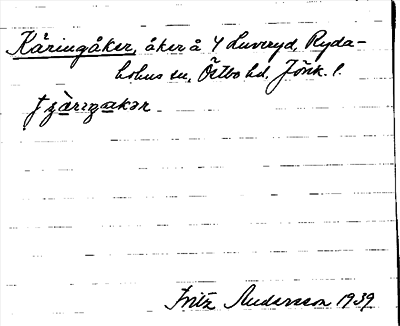 Käringåker, åker å 4 Luveryd, Ryda-
holms sn, Östbo hd, Jönk. l.
Fritz Andersson 1939